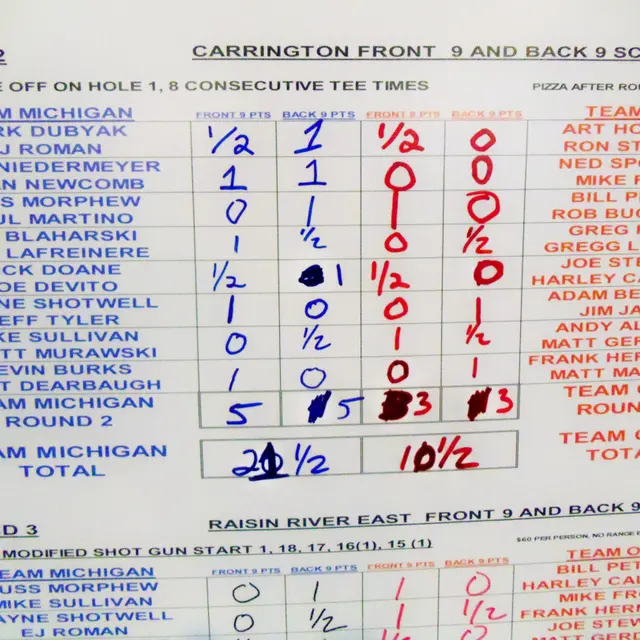 2 CARRINGTON FRONT 9 AND BACK 9
E OFF ON HOLE 1, 8 CONSECUTIVE TEE TIMES PIZZA AFTER
M MICHIGAN FRONT 9 PTS BACK 9 PTS FRONT 9 PTS BACK 9 PTS TEAM
RK DUBYAK 1/2 1 1/2 0 ART
J ROMAN RON
NIEDERMEYER 1 1 0 0 NED
N NEWCOMB MIKE
S MORPHEW 0 1 1 0 BILL
UL MARTINO ROB
BLAHARSKI 1 1/2 0 1/2 GREG
LAFREINERE GREGG
CK DOANE 1/2 1 1/2 0 JOE
OE DEVITO HARLEY
NE SHOTWELL 1 0 0 1 ADAM
EFF TYLER JIM
KE SULLIVAN 0 1/2 1 1/2 ANDY
TT MURAWSKI MATT
EVIN BURKS 1 0 0 1 FRANK
T DEARBAUGH MATT
AM MICHIGAN 5 5 3 3 TEAM
ROUND 2
AM MICHIGAN 21 1/2 10 1/2 TEAM
TOTAL
D 3 RAISIN RIVER EAST FRONT 9 AND BACK 9
MODIFIED SHOT GUN START 1, 18, 17, 16(1), 15 (1) $60 PER PERSON, NO RANGE
EAM MICHIGAN FRONT 9 PTS BACK 9 PTS FRONT 9 PTS BACK 9 PTS TEAM
USS MORPHEW 0 1 1 0 BILL
MIKE SULLIVAN HARLEY
AYNE SHOTWELL 0 1/2 1 1/2 MIKE
EJ ROMAN FRANK
JOE